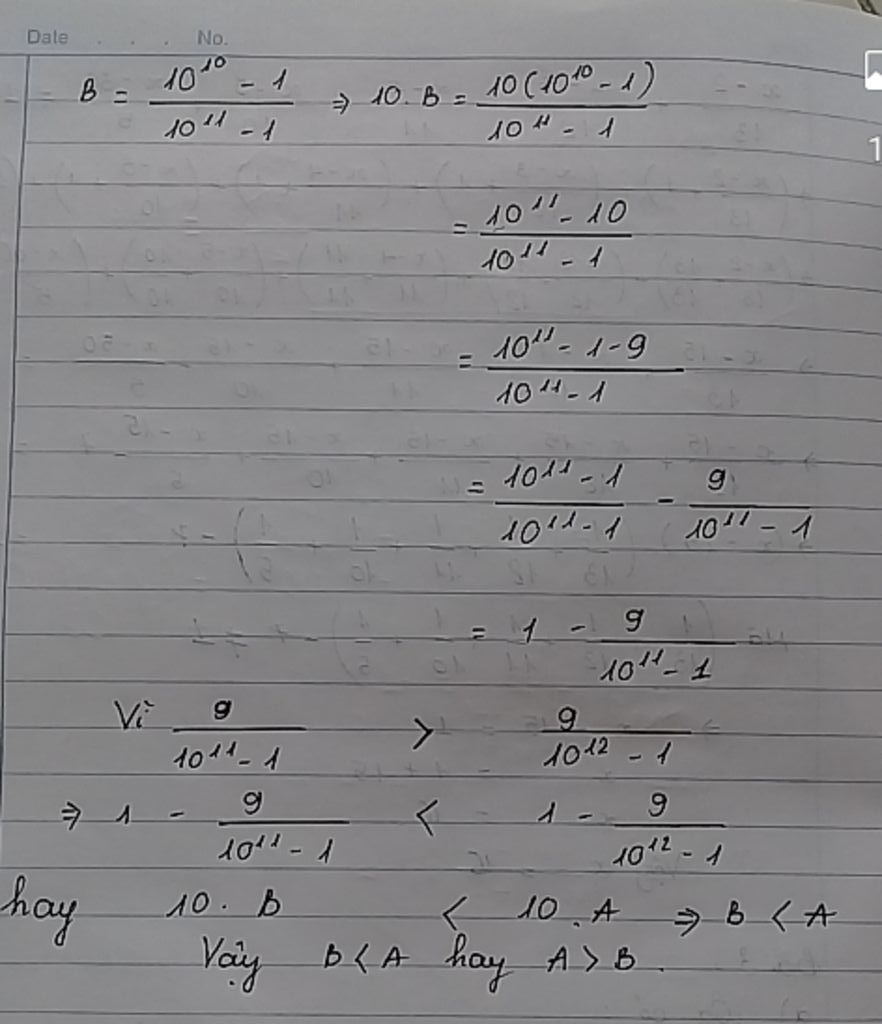 Date . . . No.
B = \frac{10^{10} - 1}{10^{11} - 1} ⇒ 10. B = \frac{10(10^{10} - 1)}{10^{11} - 1}
= \frac{10^{11} - 10}{10^{11} - 1}
= \frac{10^{11} - 1 - 9}{10^{11} - 1}
= \frac{10^{11} - 1}{10^{11} - 1} - \frac{9}{10^{11} - 1}
= 1 - \frac{9}{10^{11} - 1}
Vì \frac{9}{10^{11} - 1} > \frac{9}{10^{12} - 1}
⇒ 1 - \frac{9}{10^{11} - 1} < 1 - \frac{9}{10^{12} - 1}
hay 10. B < 10. A ⇒ B < A
Vậy B < A hay A > B.